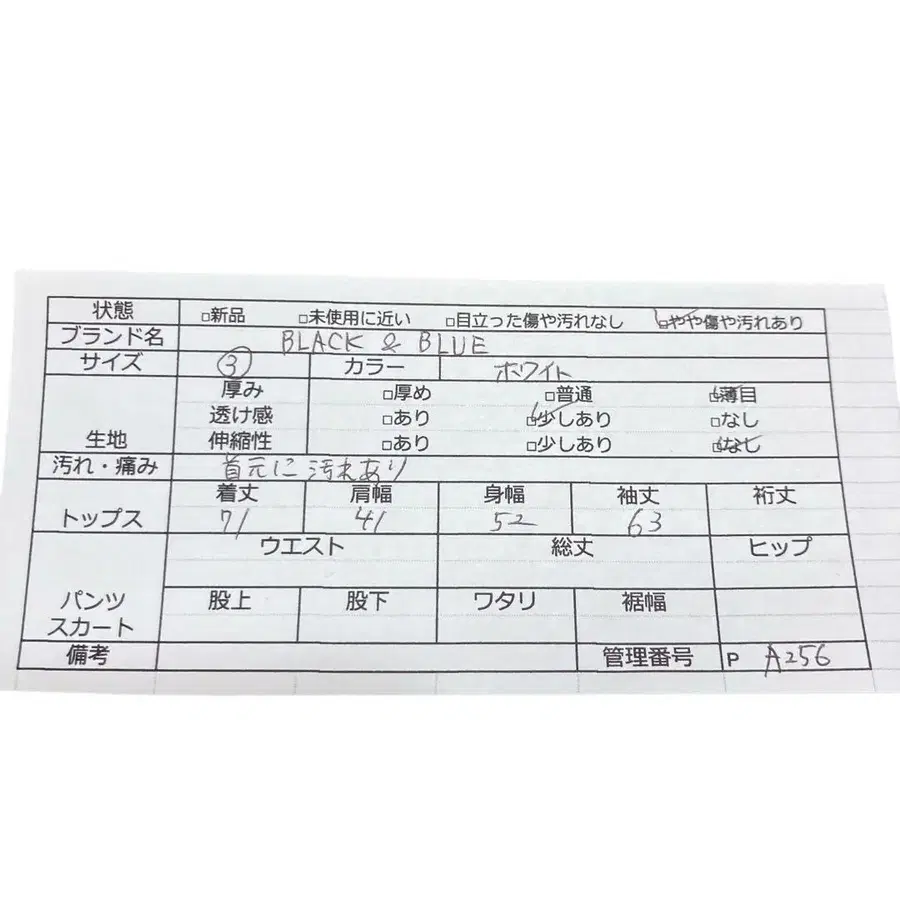 状態 □新品 □未使用に近い □目立った傷や汚れなし ☑やや傷や汚れあり
ブランド名 BLACK & BLUE
サイズ ③ カラー ホワイト
厚み □厚め □普通 ☑薄目
透け感 □あり ☑少しあり □なし
生地 伸縮性 □あり □少しあり ☑なし
汚れ・痛み 首元に汚れあり
着丈 肩幅 身幅 袖丈 裄丈
トップス 71 41 52 63
ウエスト 総丈 ヒップ
パンツ 股上 股下 ワタリ 裾幅
スカート
備考 管理番号 P A256